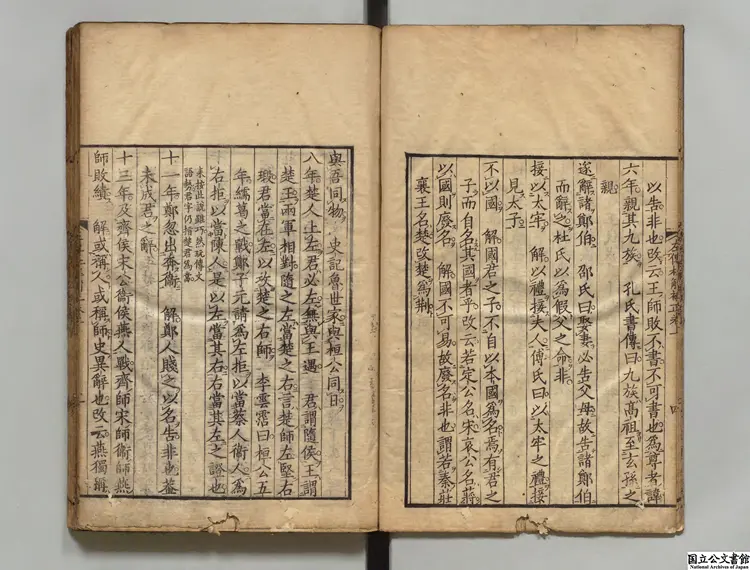 以告非也改云王師敗不書不可書也爲尊者諱
六年親其九族　孔氏書傳曰九族高祖至玄孫之
親
遂辭諸鄭伯　邵氏曰娶妻必告父母故告諸鄭伯
而辭之杜氏以爲假父之命非
接以太牢　解以禮接夫人傅氏曰以太牢之禮接
見太子
不以國　解國君之子不自以本國爲名焉有君之
子而自名其國者乎改云若定公名宋哀公名蔣
以國則廢名　解國不可易故廢名非也謂若秦莊
襄王名楚改楚爲荆
與吾同物　史記魯世家與桓公同日
八年楚人上左君必左無與王遇　君謂隨侯王謂
楚王兩軍相對隨之左當楚之右言楚師左堅右
瑕君當在左以攻楚之右師　李雲霑曰桓公五
年繻葛之戰鄭子元請爲左拒以當蔡人衛人爲
右拒以當陳人是以左當其右右當其左之證也
未按此說雖巧然玩傳文
語勢君字仍指楚君爲當
十一年鄭忽出奔衛　解鄭人賤之以名告非也蓋
未成君之辭
十三年及齊侯宋公衛侯燕人戰齊師宋師衛師燕
師敗績　解或稱人或稱師史異辭也改云燕獨稱
国立公文書館
National Archives of Japan